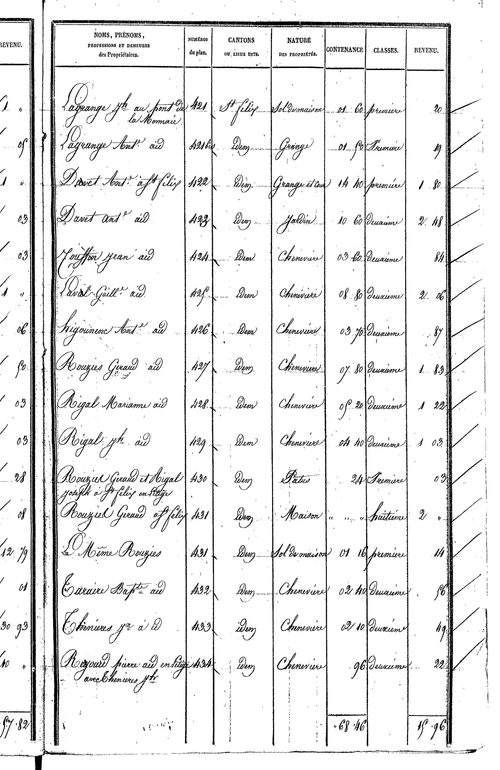 REVENU.
NOMS, PRÉNOMS, PROFESSIONS ET DEMEURES des Propriétaires. NUMÉROS du plan. CANTONS OU LIEUX DITS. NATURE DES PROPRIÉTÉS. CONTENANCE CLASSES. REVENU.
1 "
Lagrange jh au pont de 421 St felix Sol de maison 01 60 première 20
la Monnaie
05 Lagrange Antne aid 421 bis idem Grange 01 50 Premiere 19
1 " Davet Antne a st felix 422 idem Grange et 14 40 première 1 80
03 Davet antne aid 423 idem Jardin 10 60 deuxieme 2 48
03 Jean aid 424 idem Cheneviere 03 60 deuxieme 84
1 " Laval Guille aid 425 idem Cheneviere 08 80 deuxieme 2 06
06 Antne aid 426 idem Cheneviere 03 70 deuxieme 87
50 Rouziès Geraud aid 427 idem Cheneviere 07 80 deuxieme 1 83
03 Rigal Marianne aid 428 idem Cheneviere 05 20 deuxieme 1 22
03 Rigal jh aid 429 idem Cheneviere 04 40 deuxieme 1 03
28 Rouziès Geraud et Rigal 430 idem Patus 24 Premiere 03
joseph a st felix en
08 Rouziès Geraud a st felix 431 idem Maison " " " huitieme 2 "
12 79 Le Même Rouzies 431 idem Sol de maison 01 16 première 14
01 Baptte aid 432 idem Cheneviere 02 40 deuxieme 56
30 93 Thenières à id 433 idem Cheneviere 02 10 deuxième 49
10 " pierre aid en 434 idem Cheneviere 96 deuxieme 22
avec Thenières
57 82 68 46 15 96